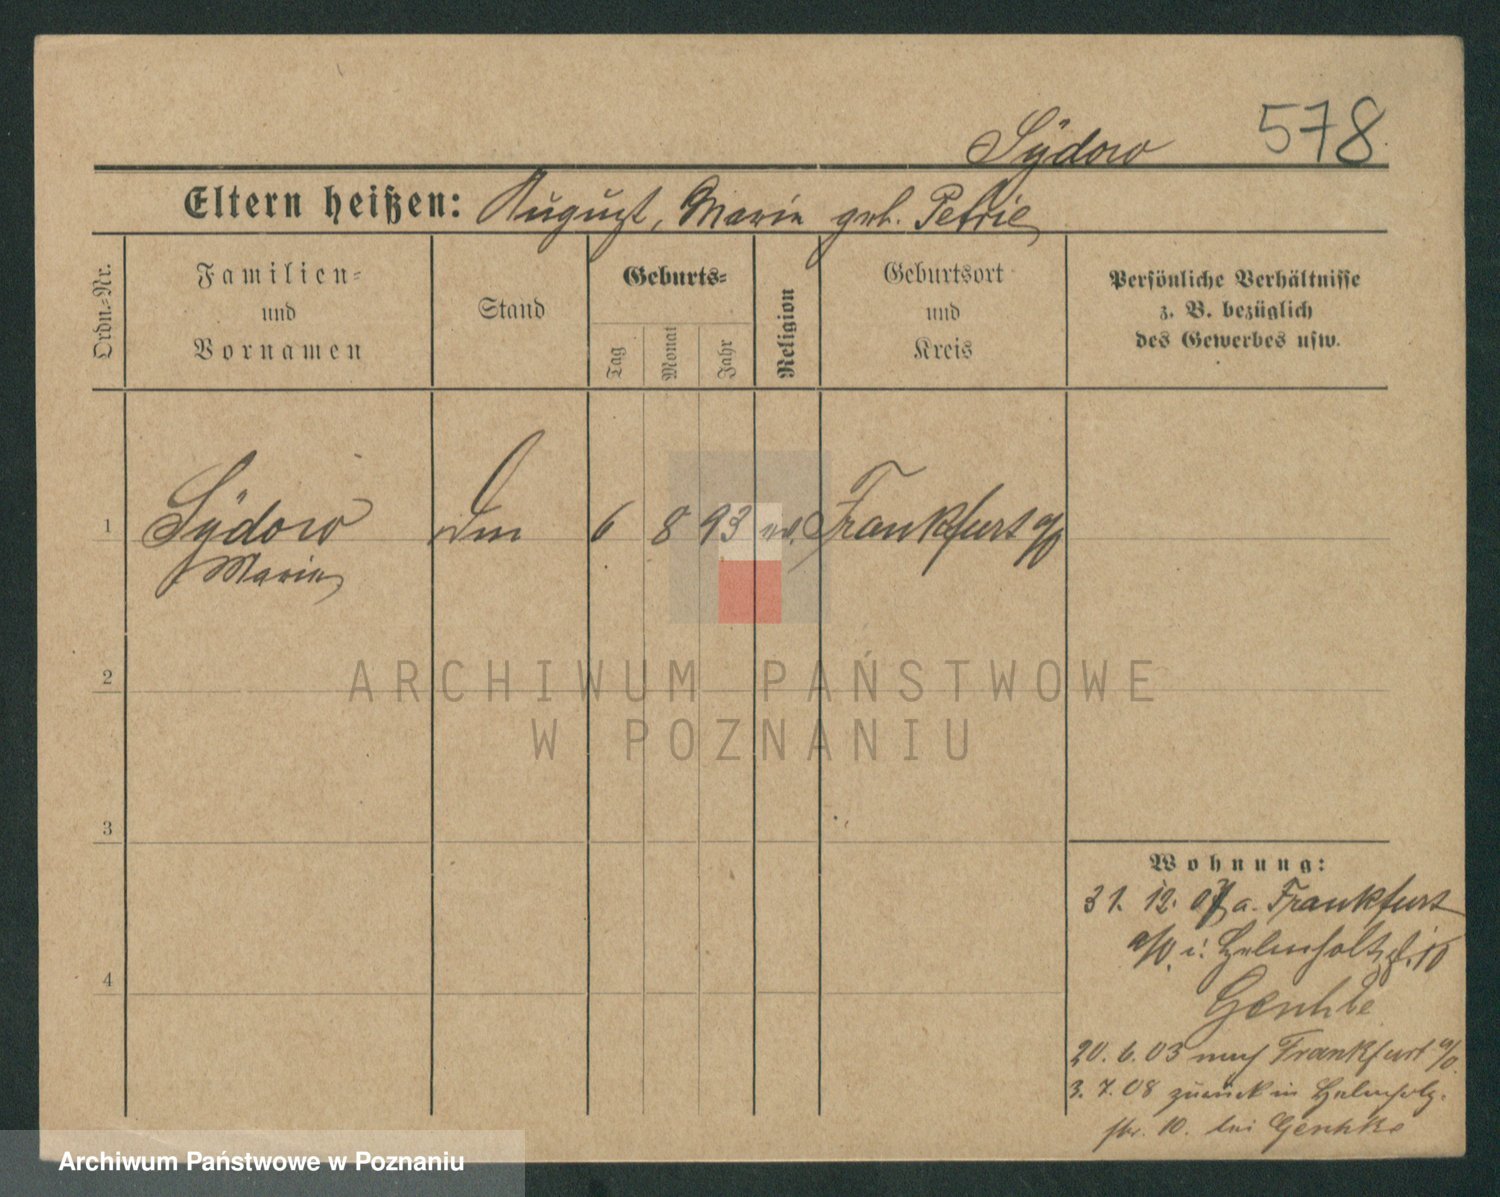 Sÿdow 578.
Eltern heißen: August, Marie geb. Petrie
Ordn.-Nr.
Familien-
und
Vornamen
Stand
Geburts-
Tag
Monat
Jahr
Religion
Geburtsort
und
Kreis
Persönliche Verhältnisse
z. B. bezüglich
des Gewerbes usw.
1 Sÿdow 6 8 93 ev. Frankfurt a/O
Marie
2
ARCHIWUM PAŃSTWOWE
W POZNANIU
3
Wohnung:
31. 12. 07 a. Frankfurt
a/O. i. 10
4
20. 6. 03 nach Frankfurt a/O.
3. 7. 08 zurück in
str. 10. bei Genhke
Archiwum Państwowe w Poznaniu